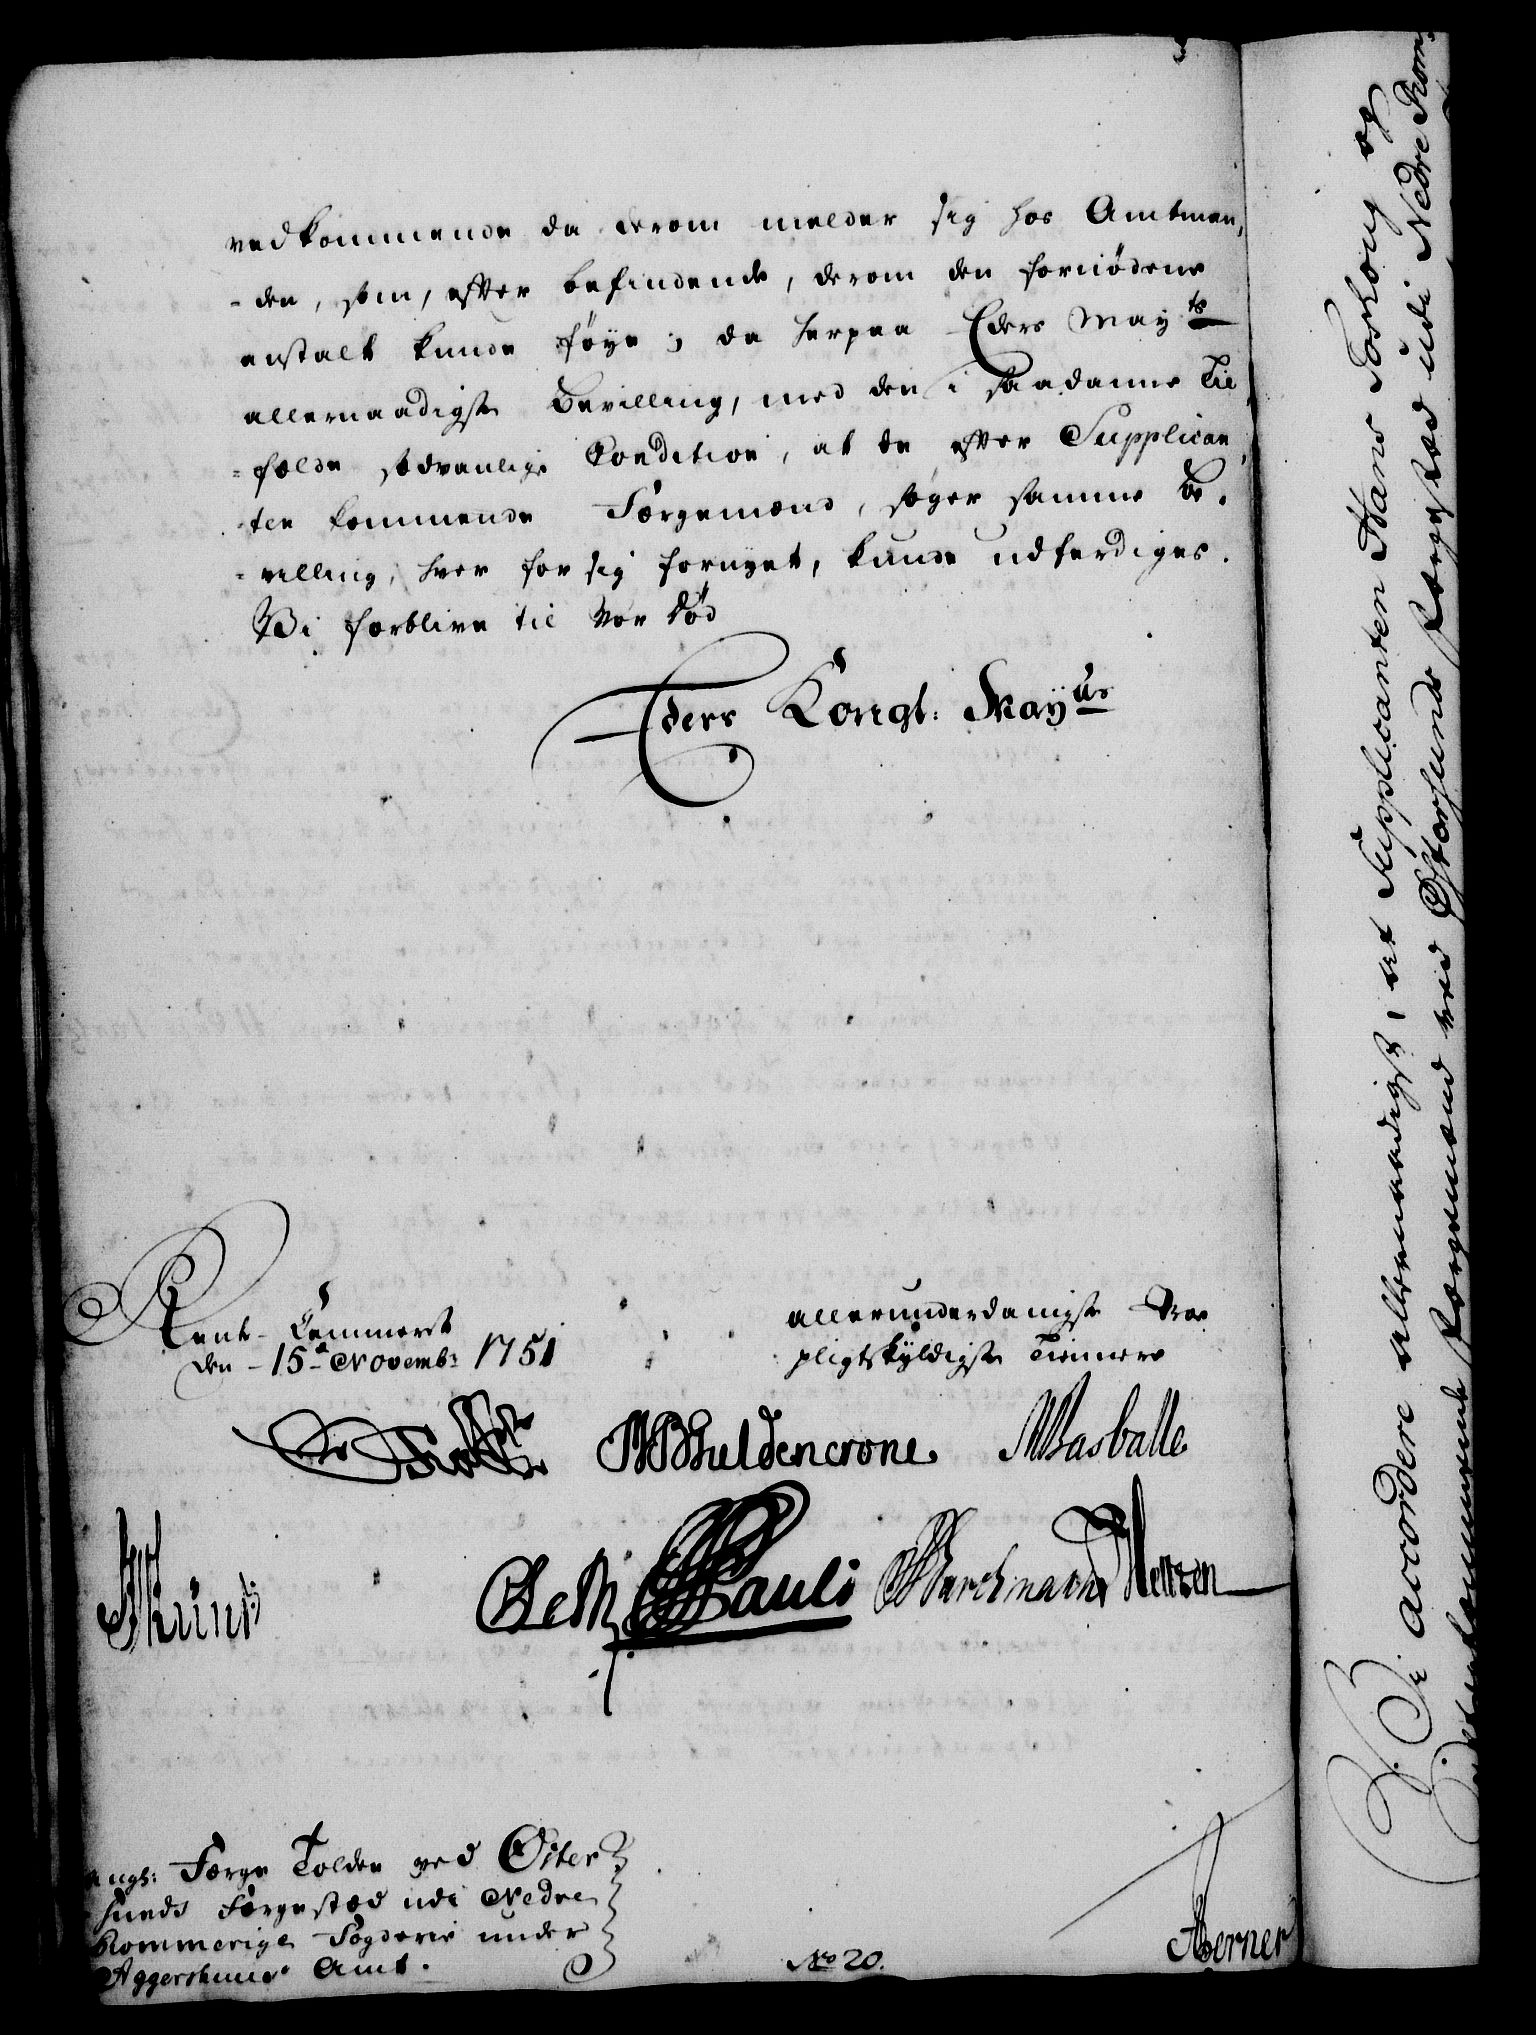 vedkommende da derom melder sig hos Amtman,
-den, som, efter befindende, derom den fornödene
anstalt kunde föye; da herpaa Eders Mayts
allernaadigste Bevilling, med den i saadanne Til
-fælde sædvanlige Condition, at de efter Supplican,
-ten kommende Færgemænd, søger samme Be-
-villing, hver for sig fornyet, kunde udferdiges.
Vi forblive til vor död
Eders Kongl: Mayts
Rente-Cammeret
den 15de Novembr 1751
allerunderdanigste Troe
pligtskyldigste Tiennere
Guldencrone Basballe
Pauli Hentzen
ngl: Færge Tolden ved Öster
sunds Færgestæd udi Nedre
Rommerige Fogderie under
Aggershuus Amt.
No 20.
Berner
Vi accordere allernaadigst, at Supplicanten Hans Torsong og
kommende Færgemænd ved Östersunds Færgestæd udi Nedre Rom-